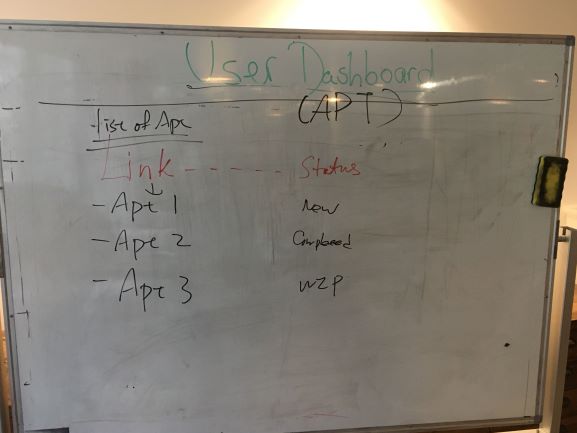 User Dashboard
(APT)
List of Apt
Link ------ Status
- Apt 1 New
- Apt 2 Completed
- Apt 3 WIP